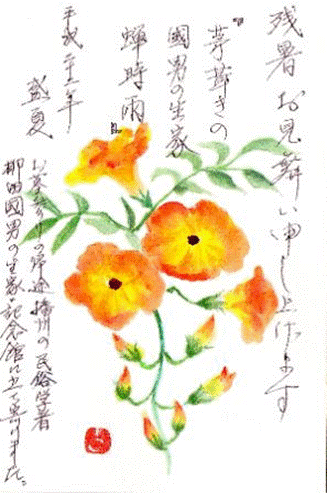 残暑お見舞い申し上げます
『茅葺きの
國男の生家
蝉時雨』
平成二十三年
盛夏
お墓参りの帰途 播州の民俗学者
柳田國男の生家・記念館に立ち寄りました。